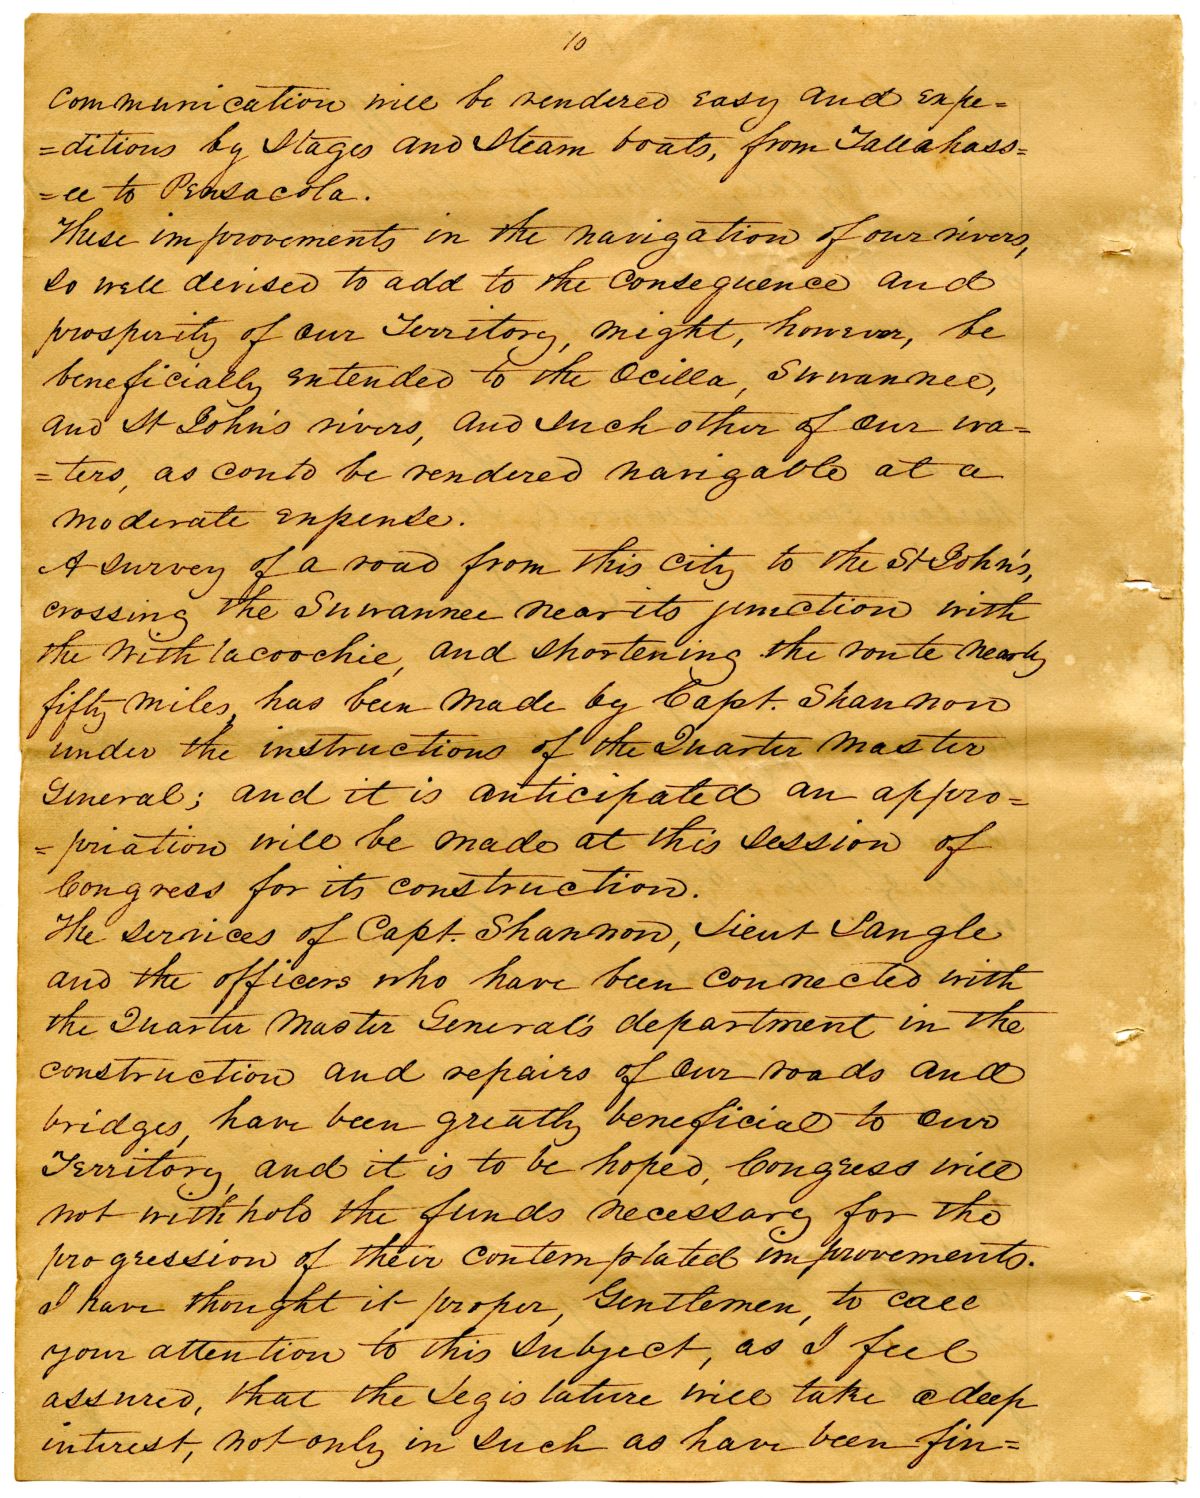 10
communication will be rendered easy and expe=
=ditious by Stages and Steam boats, from Tallahass=
=ee to Pensacola.
These improvements in the navigation of our rivers,
so well devised to add to the consequence and
prosperity of our Territory, might, however, be
beneficially extended to the Ocilla, Suwannee,
and St John's rivers, and such other of our wa=
=ters, as could be rendered navigable at a
moderate expense.
A survey of a road from this city to the St John's,
crossing the Suwannee near its junction with
the Withlacoochie, and shortening the route nearly
fifty miles, has been made by Capt. Shannon
under the instructions of the Quarter Master
General; and it is anticipated an appro=
=priation will be made at this session of
Congress for its construction.
The services of Capt. Shannon, Lieut Langle
and the officers who have been connected with
the Quarter Master General's department in the
construction and repairs of our roads and
bridges, have been greatly beneficial to our
Territory, and it is to be hoped, Congress will
not withhold the funds necessary for the
progression of their contemplated improvements.
I have thought it proper, Gentlemen, to call
your attention to this subject, as I feel
assured, that the Legislature will take a deep
interest, not only in such as have been fin=